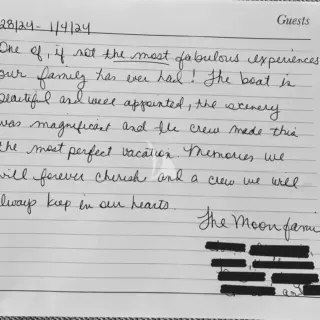 Guests
28/24 - 1/4/24
One of, if not the most fabulous experiences
our family has ever had! The boat is
beautiful and well appointed, the scenery
was magnificent and the crew made this
the most perfect vacation. Memories we
will forever cherish and a crew we will
always keep in our hearts.
The Moon fami
and